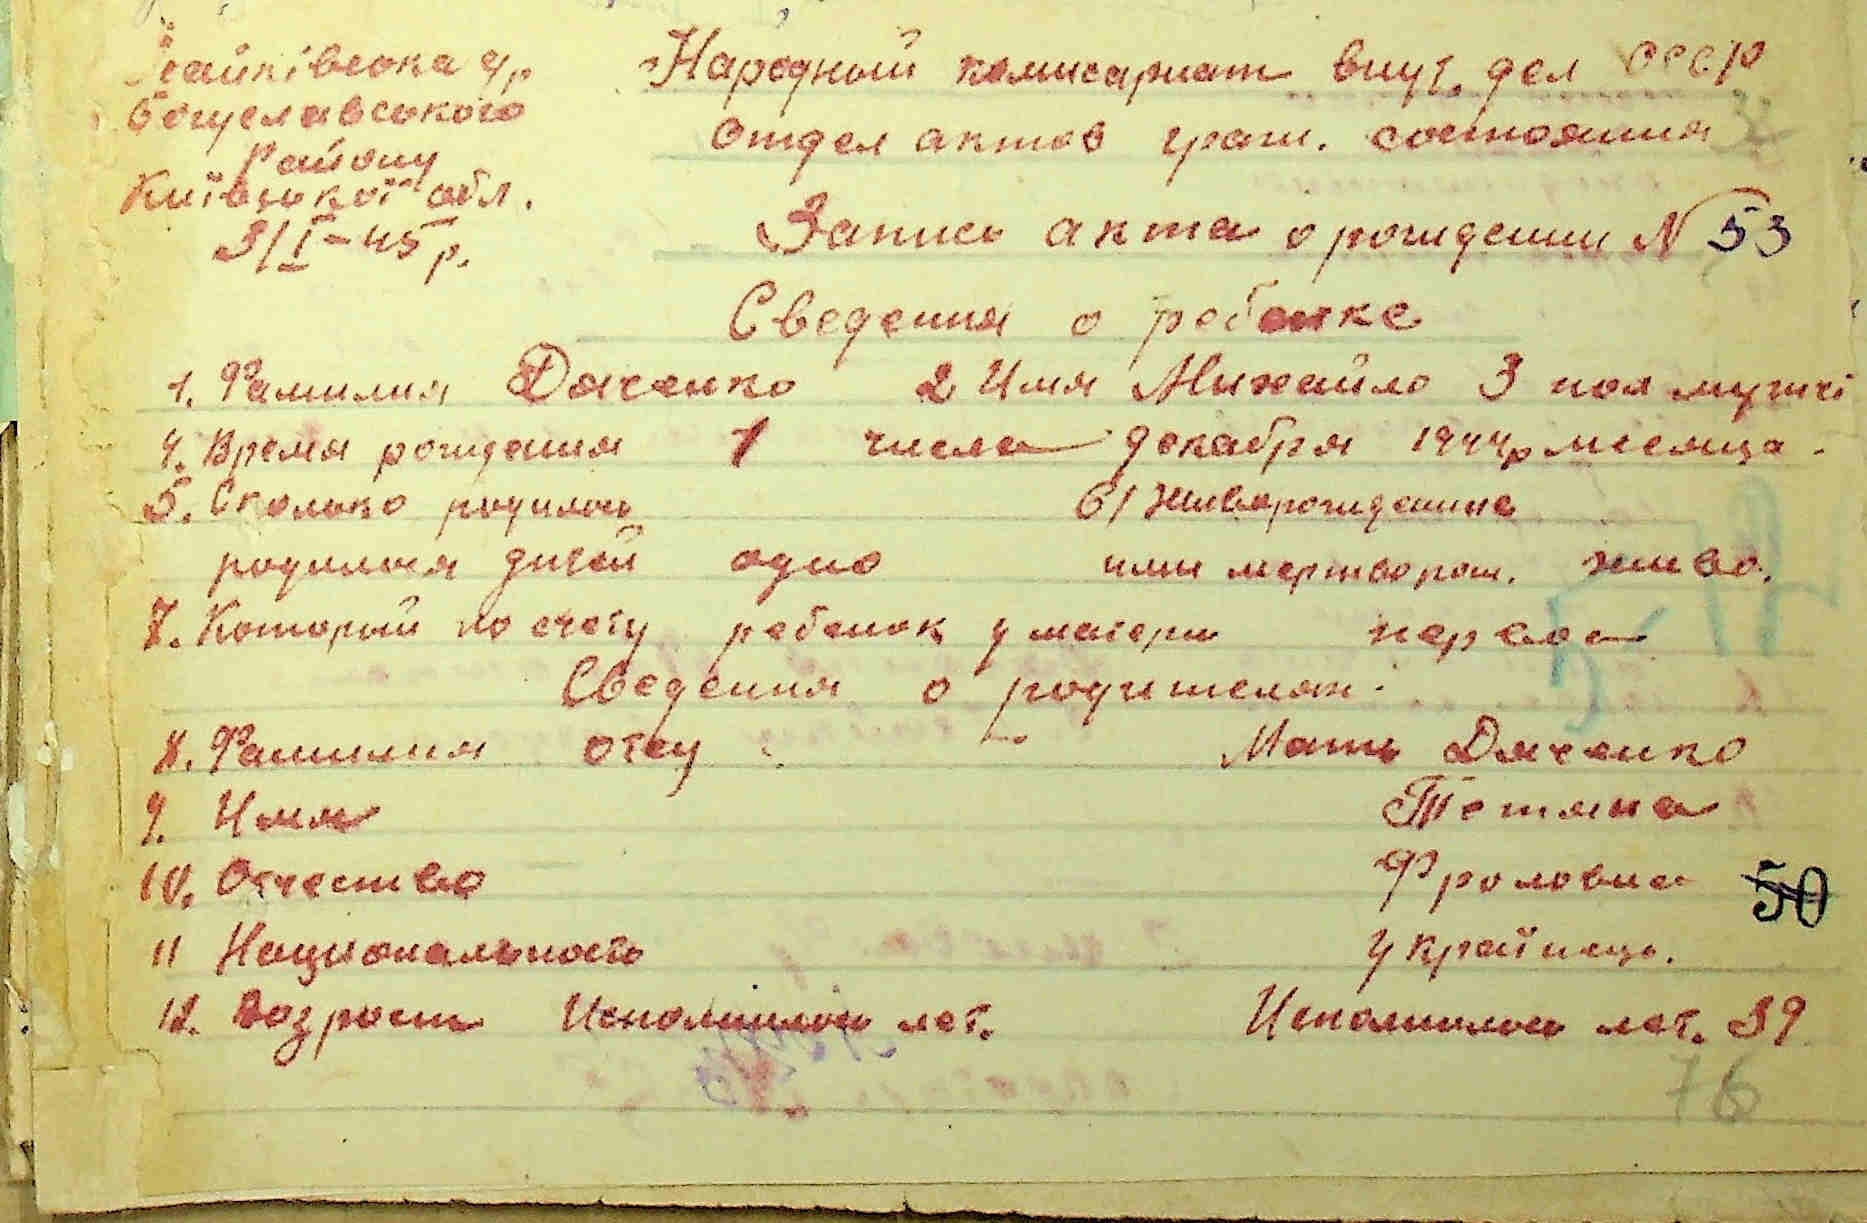 Ісайківська с/р
Богуславського
Району
Київської обл.
3/I-45 р.
Народный комисариат внут. дел СССР
Отдел актов граж. состояния
Запись акта о рождении N 53
Сведения о ребенке
1. Фамилия Дяченко 2 Имя Михайло 3 пол
4. Время рождения 1 числа декабря 1944р месяца
5. Сколько родилось 6/ Живорождение
родилося дитей одно или мертворож. живо.
7. Который по счету ребенок у матери первое
Сведения о родителях.
8. Фамилия отец - Мать Дяченко
9. Имя Тетяна
10. Отчество Фроловна 50
11 Национальность українець.
12. Возраст Исполнилось лет. Исполнилось лет. 39
76